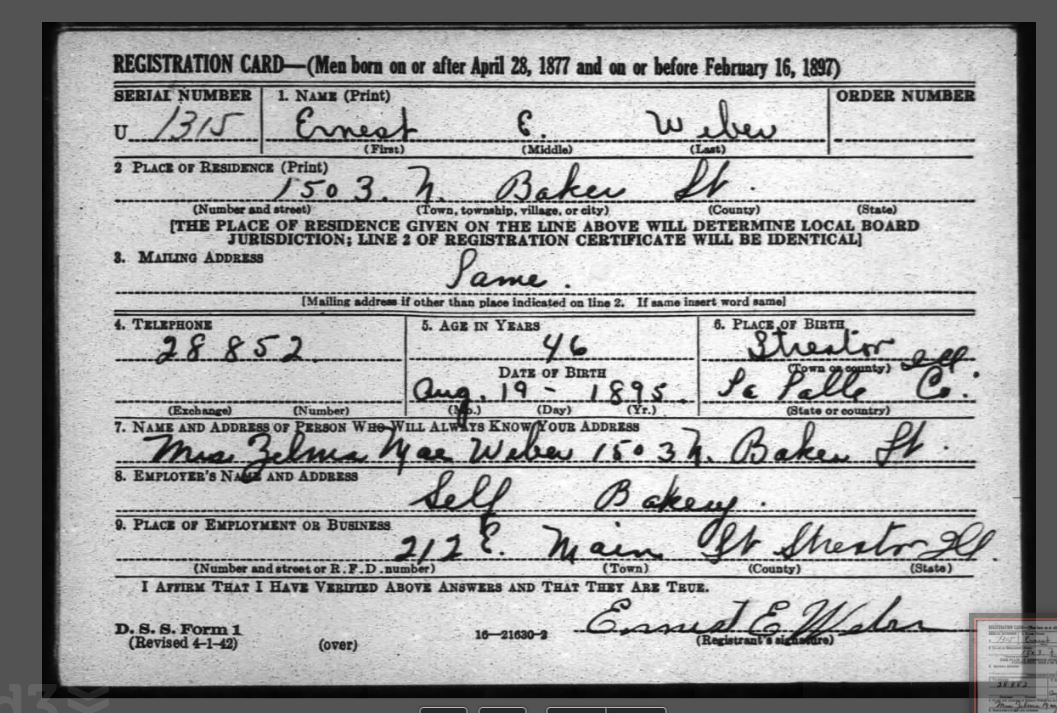 REGISTRATION CARD—(Men born on or after April 28, 1877 and on or before February 16, 1897)
SERIAL NUMBER 1. NAME (Print) ORDER NUMBER
U 1315 Ernest E. Weber
(First) (Middle) (Last)
2 PLACE OF RESIDENCE (Print)
1503. N. Baker St.
(Number and street) (Town, township, village, or city) (County) (State)
[THE PLACE OF RESIDENCE GIVEN ON THE LINE ABOVE WILL DETERMINE LOCAL BOARD
JURISDICTION; LINE 2 OF REGISTRATION CERTIFICATE WILL BE IDENTICAL]
3. MAILING ADDRESS
Same.
[Mailing address if other than place indicated on line 2. If same insert word same]
4. TELEPHONE 5. AGE IN YEARS 6. PLACE OF BIRTH
28852 46 Streator Ill
DATE OF BIRTH (Town or county)
Aug. 19 - 1895. La Salle Co.
(Exchange) (Number) (Mo.) (Day) (Yr.) (State or country)
7. NAME AND ADDRESS OF PERSON WHO WILL ALWAYS KNOW YOUR ADDRESS
Mrs. Zelma Mae Weber 1503 N. Baker St.
8. EMPLOYER'S NAME AND ADDRESS
Self Bakery.
9. PLACE OF EMPLOYMENT OR BUSINESS
212 E. Main St Streator Ill.
(Number and street or R.F.D. number) (Town) (County) (State)
I AFFIRM THAT I HAVE VERIFIED ABOVE ANSWERS AND THAT THEY ARE TRUE.
Ernest E Weber
D. S. S. Form 1
(Revised 4-1-42) (over) 16—21630-2 (Registrant's signature)